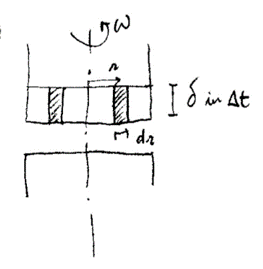 ω
r
δ in Δt
dr